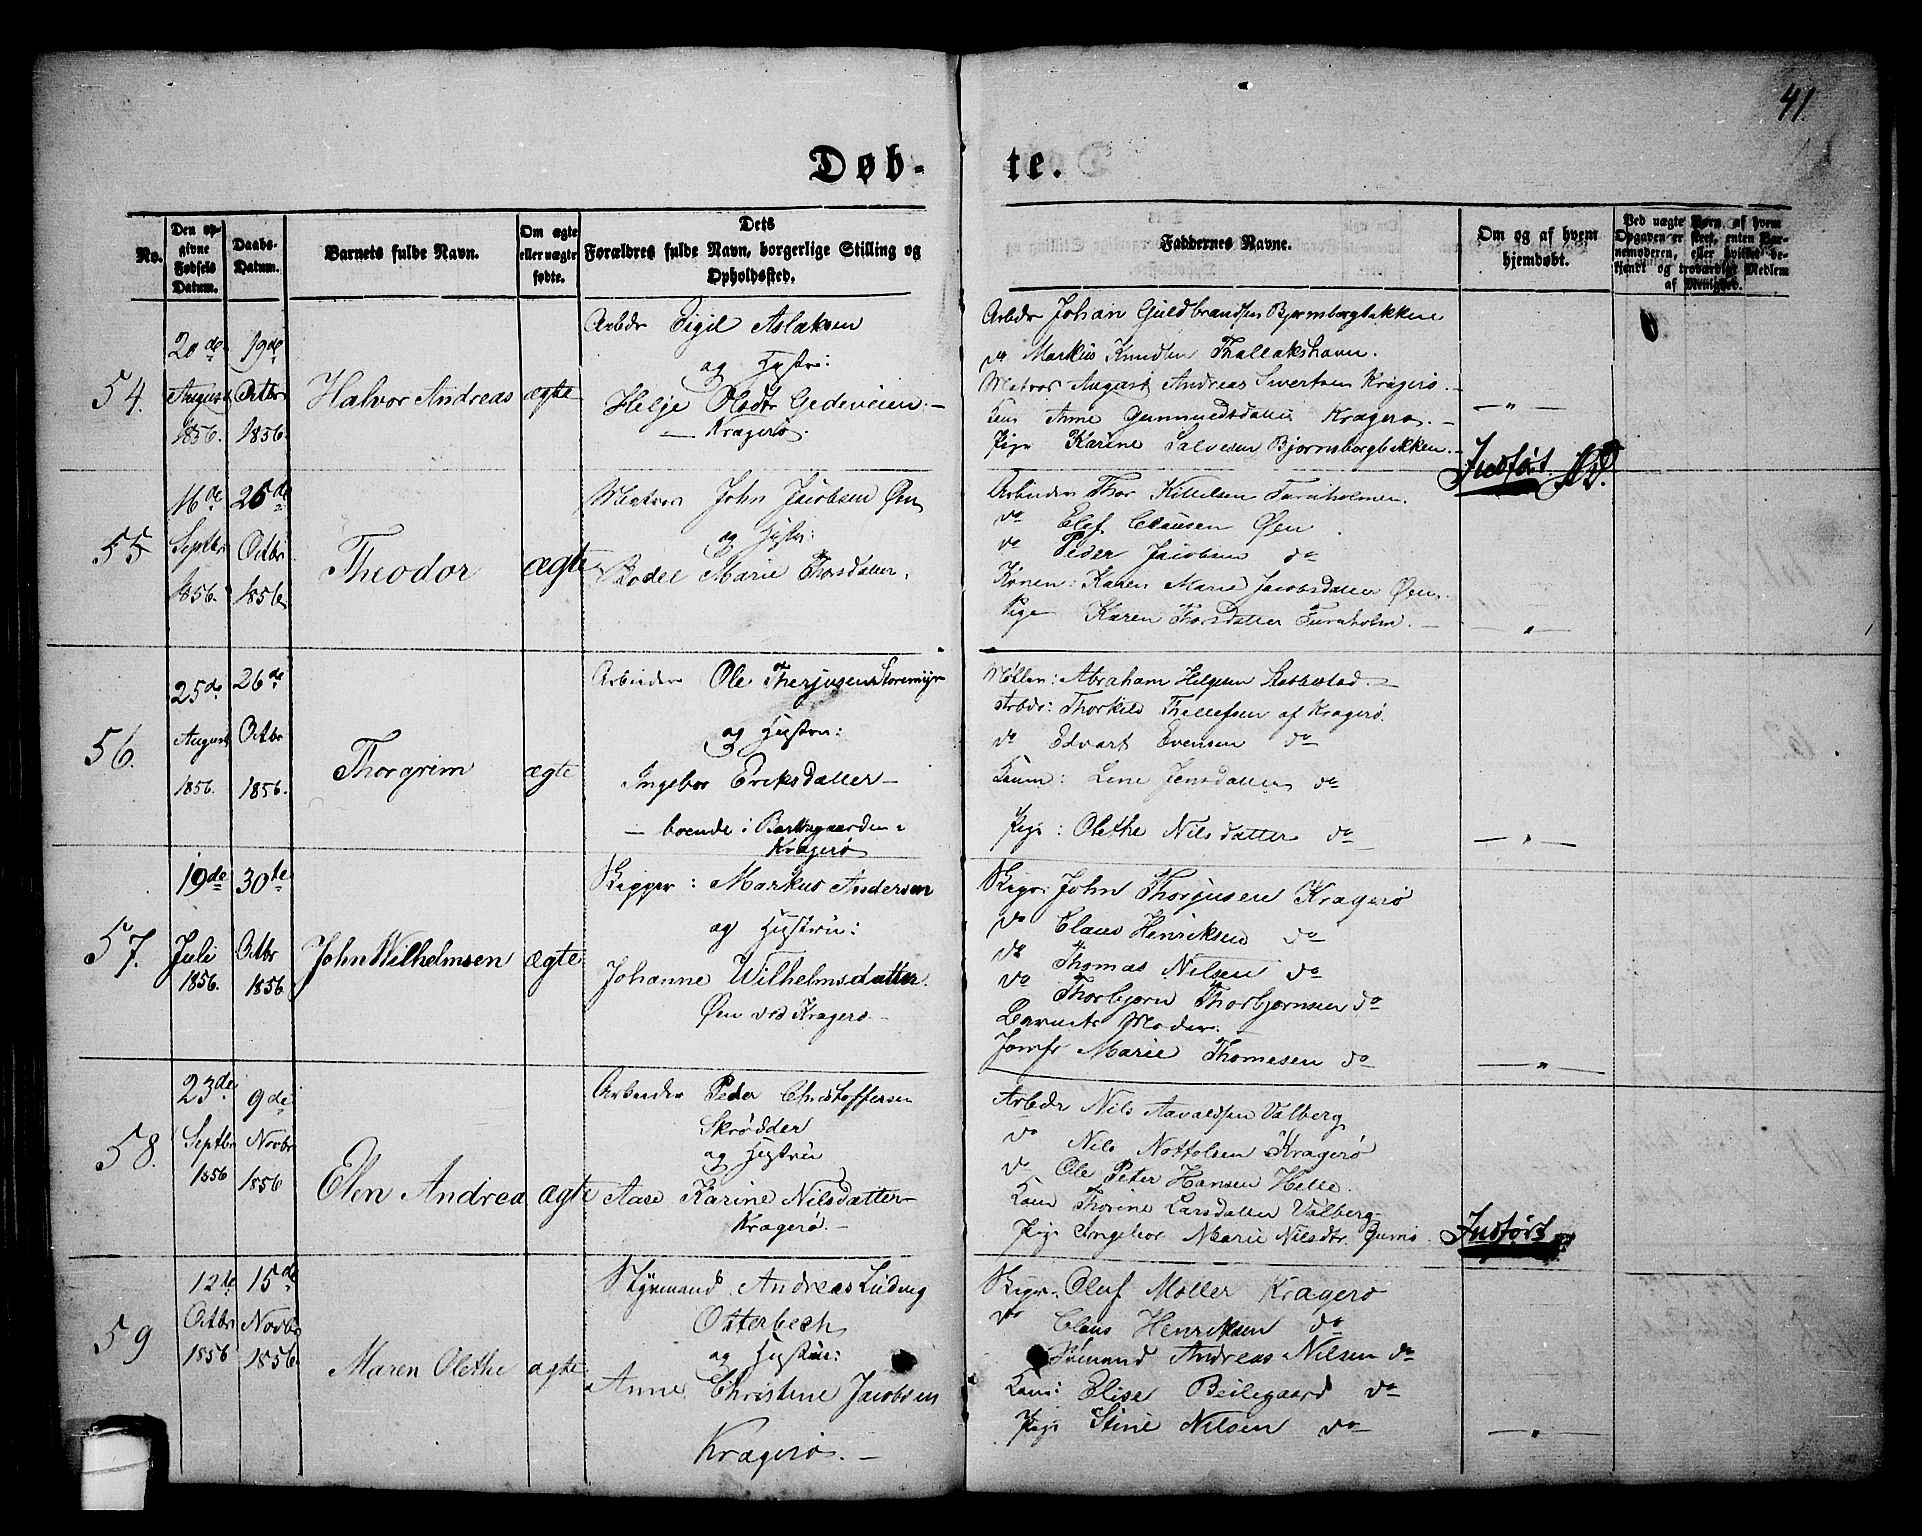 41
Døb-
te.
No.
Den op-
givne
Fødsels
Datum.
Daabs-
Datum.
Barnets fulde Navn.
Om ægte
eller uægte
fødte.
Dets
Forældres fulde Navn, borgerlige Stilling og
Opholdssted.
Faddernes Navne.
Om og af hvem
hjemdøbt.
Ved uægte Børn, af hvem
Opgaven er skeet, enten Bar-
nemoderen, eller hvilket be-
kjendt og troværdigt Medlem
af Menighed.
54.
20de
August
1856.
19de
Octbr
1856.
Halvor Andreas
ægte
Arbdr Eigil Aslaksen
og Hustru:
Helje Olsdtr Gedeveien. -
- Kragerø.
Arbdr Johan Guldbrandsen Bjørnsborgbakken
do Markus Knudsen Thallakshavn.
Matros August Andreas Sivertsen Kragerø. -
Anne Gunmundsdatter Kragerø. -
Pige Karine Salvesen Bjørnsborgbakken. -
- " -
Indført
55
16de
Septbr
1856.
26de
Octbr
1856.
Theodor
ægte
Matros John Jacobsen Øen
og Hustr:
Bodel Marie Thorsdatter.
Arbeider Thor Kittelsen Furuholmen.
do Elef Clausen Øen.
do Peder Jacobsen do
Konen: Karen Marie Jacobsdatter Øen.
Pige Karen Thorsdatter Furuholm. -
- " -
56.
25de
August
1856.
26de
Octbr
1856.
Thorgrim
ægte
Arbeider Ole Therjusen Storemyr
og Hustru:
Ingebor Eriksdatter -
- boende i Barthegaarden.
Kragerø
Møllen: Abraham Helgesen Stabbestad. -
Arbdr: Thorkild Thellefsen af Kragerø.
do Edvart Evensen do
Koum: Lene Jensdatter do
Pige: Olethe Nilsdatter do
- " -
57.
19de
Juli
1856.
30te
Octbr
1856.
John Wilhelmsen
ægte
Rigger: Markus Andersen
og Hustru:
Johanne Wilhelmsdatter.
Øen ved Kragerø. -
Rigr: John Thorjusen Kragerø
do Claus Henriksen do
do Thomas Nilsen do
do Thorbjørn Thorbjørnsen do
Barnets Moder.
Jomfr Marie Thomesen do
- " -
58.
23de
Septbr
1856
9de
Novbr
1856
Elen Andrea
ægte
Arbeider Peder Christoffersen
Skrødder
og Hustru
Aase Karine Nilsdatter -
Kragerø. -
Arbdr Nils Aavaldsen Valberg
do Nils Nottolsen Kragerø
do Ole Peter Hansen Helle.
Kom Thorine Larsdatter Valberg -
Pige Ingebor Marie Nilsdtr.
Indført
59
12te
Octbr
1856
15de
Novbr
1856.
Maren Olethe
ægte
Styrmand Andreas Ludvig
Otterbech
og Hustru:
Anne Christine Jacobsen
Kragerø. -
Rigr. Oluf Møller Kragerø
do Claus Henriksen do
Sømand Andreas Nilsen do
Kom: Elise Beilegaard do
Pige Stine Nilsen do
- " -